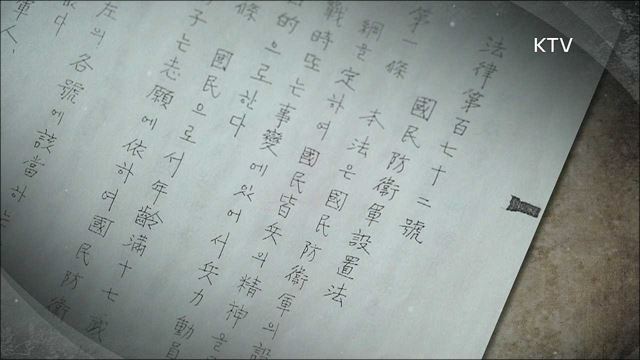 法律第百七十二號
國民防衛軍設置法
第一條 本法은國民防衛軍의設
綱을定하여國民皆兵의精神을
戰時또는事變에있어서兵力動員
目的으로한다
條 國民으로서年齡滿十七歲
子는志願에依하여國民防衛
없다
左의各號에該當하는
軍人、
KTV